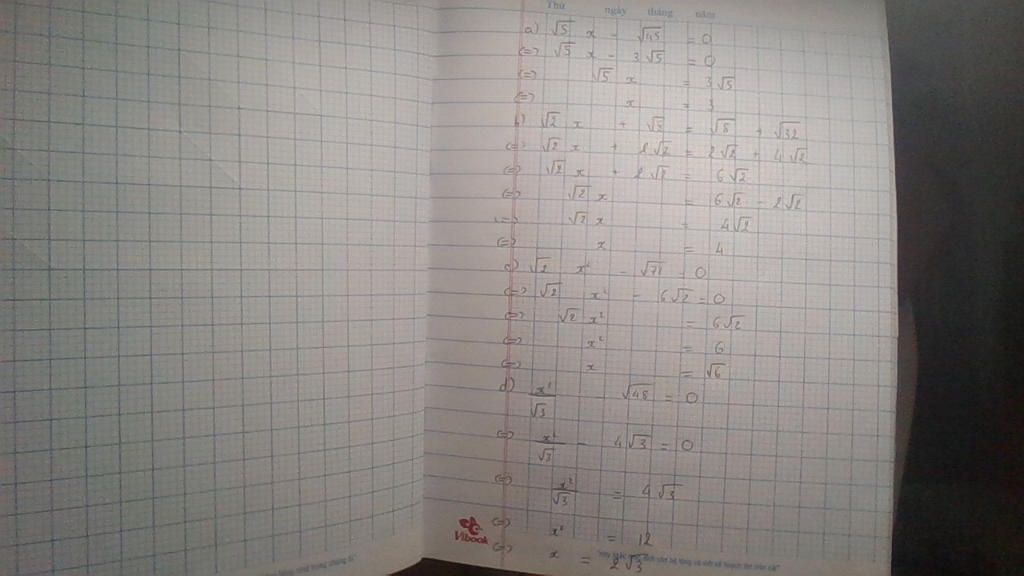 Thứ ngày tháng năm
a) √5 x - √45 = 0
<=> √5 x - 3√5 = 0
<=> √5 x = 3√5
<=> x = 3
b) √2 x + √8 = √8 + √32
<=> √2 x + 2√2 = 2√2 + 4√2
<=> √2 x + 2√2 = 6√2
<=> √2 x = 6√2 - 2√2
<=> √2 x = 4√2
<=> x = 4
c) √2 x² - √72 = 0
<=> √2 x² - 6√2 = 0
<=> √2 x² = 6√2
<=> x² = 6
<=> x = √6
d) x²/√3 - √48 = 0
<=> x²/√3 - 4√3 = 0
<=> x²/√3 = 4√3
<=> x² = 12
<=> x = 2√3
Vibook